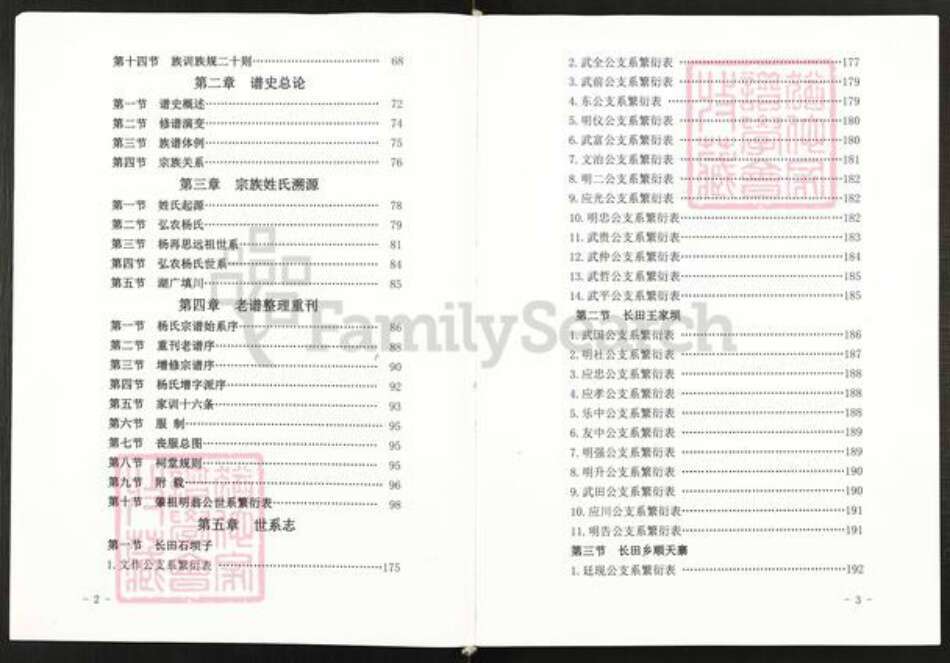 第十四节 族训族规二十则 68
第二章 谱史总论
第一节 谱史概述 72
第二节 修谱演变 74
第三节 族谱体例 75
第四节 宗族关系 76
第三章 宗族姓氏溯源
第一节 姓氏起源 78
第二节 弘农杨氏 79
第三节 杨再思远祖世系 81
第四节 弘农杨氏世系 84
第五节 湖广填川 85
第四章 老谱整理重刊
第一节 杨氏宗谱始系序 86
第二节 重刊老谱序 88
第三节 增修宗谱序 90
第四节 杨氏增字派序 92
第五节 家训十六条 93
第六节 服 制 95
第七节 丧服总图 95
第八节 祠堂规则 95
第九节 附 载 96
第十节 肇祖明翁公世系繁衍表 98
第五章 世系志
第一节 长田石坝子
1. 文作公支系繁衍表 175
- 2 -
2. 武全公支系繁衍表 177
3. 武前公支系繁衍表 179
4. 东公支系繁衍表 179
5. 明仪公支系繁衍表 180
6. 武富公支系繁衍表 180
7. 文治公支系繁衍表 181
8. 明二公支系繁衍表 182
9. 应光公支系繁衍表 182
10. 明忠公支系繁衍表 182
11. 武贵公支系繁衍表 183
12. 武仲公支系繁衍表 184
13. 武哲公支系繁衍表 185
14. 武平公支系繁衍表 185
第二节 长田王家坝
1. 武国公支系繁衍表 186
2. 明社公支系繁衍表 187
3. 应忠公支系繁衍表 188
4. 应孝公支系繁衍表 188
5. 乐中公支系繁衍表 188
6. 友中公支系繁衍表 189
7. 明强公支系繁衍表 189
8. 明升公支系繁衍表 190
9. 武田公支系繁衍表 190
10. 应川公支系繁衍表 191
11. 明告公支系繁衍表 191
第三节 长田乡顺天寨
1. 廷现公支系繁衍表 192
- 3 -
FamilySearch